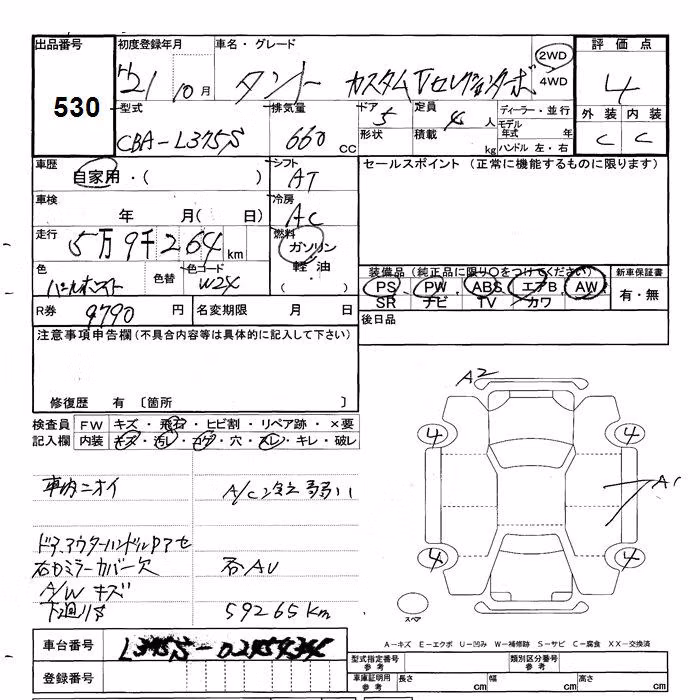 出品番号
530
初度登録年月
H21 10月
車名・グレード
タント カスタムVセレクションターボ
2WD
4WD
評価点
4
外装 内装
C C
型式
CBA-L375S
排気量
660 CC
ドア
5
形状
定員
4人
積載 kg
ディーラー・並行
モデル年式 年
ハンドル 左・右
車歴
自家用・( )
シフト
AT
セールスポイント(正常に機能するものに限ります)
車検
年 月( 日)
冷房
AC
走行
5万9千264km
燃料
ガソリン
軽油
・( )
色
パールホワイト
色替
色コード
W24
装備品(純正品に限り○をつけてください)
PS・PW・ABS・エアB・AW
SR ナビ TV カワ
新車保証書
有・無
R券 9790 円
名変期限 月 日
後日品
注意事項申告欄(不具合内容等は具体的に記入して下さい)
修復歴 有 〔箇所 〕
検査員記入欄
FW キズ・飛石・ヒビ割・リペア跡・×要
内装 キズ・汚レ・コゲ・穴・スレ・キレ・破レ
車内ニオイ
A/C冷え弱い
ドアアウターハンドル色アセ
右ドアミラーカバー欠
石AU
A/W キズ
下廻りS
59265km
A2
4 4
A1
4 4
スペア
A−キズ E−エクボ U−凹み W−補修跡 S−サビ C−腐食 XX−交換済
車台番号
登録番号
型式指定番号 参考
類別区分番号 参考
車庫証明用 参考
長さ cm 幅 cm 高さ cm